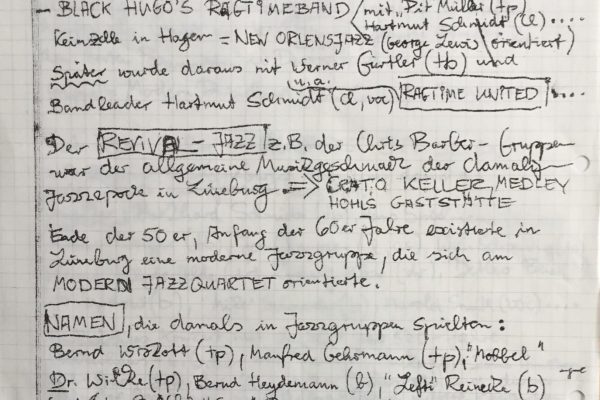 - BLACK HUGO'S RAGTIMEBAND / mit "Pit Müller (tp)
Hartmut Schmidt (cl) ....
Keimzelle in Hagen = NEW ORLENSJAZZ (George Lewis orientiert)
Später wurde daraus mit Werner Gürtler (tb) und
u.a.
Bandleader Hartmut Schmidt (cl, voc) RAGTIME UNITED ....
Der REVIVAL - JAZZ z.B. der Chris Barber - Gruppen
war der allgemeine Musikgeschmack der damals
Jazzepoche in Lüneburg => KELLER, MEDLEY
HOHLS GASTSTÄTTE
Ende der 50er, Anfang der 60er Jahre existierte in
Lüneburg eine moderne Jazzgruppe, die sich am
MODERN JAZZQUARTET orientierte.
NAMEN, die damals in Jazzgruppen spielten:
Bernd (tp), Manfred (tp), "Mobbel"
Dr. (tp), Bernd Heydemann (b), "Lefti" Reinecke (b)